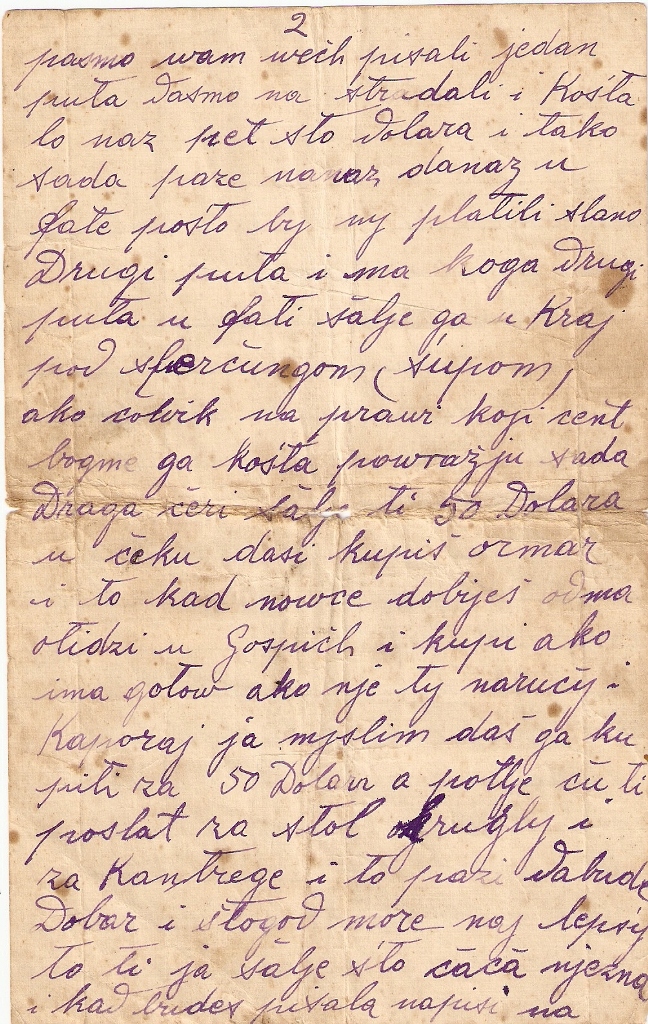 2
pasmo wam wech pisali jedan
puta dasmo na stradali i Košta
lo naz pet sto dolara i tako
sada paze danaz u
fate pošto by ny platili slano
Drugi puta i ma koga drugi
puta u fati šalje ga u Kraj
pod sferčungom (šupom)
ako čolvik na prawi koji cent
bogme ga košta powražju sada
Draga ćeri šalje ti 50 Dolara
u čeku dasi kupiš ormar
i to kad nowce dobiješ odma
otidzi u Gospich i kupi ako
ima gotow ako nje ty narucy i
Kaporaj ja myslim daš ga ku
piti za 50 Dolar a potlje ću ti
poslat za stol okrugly i
za Kantrege i to pazi dabude
Dobar i štogod more naj lepsy
to ti ja šalje što ćaća njezna
i kad budes pisala napisi na